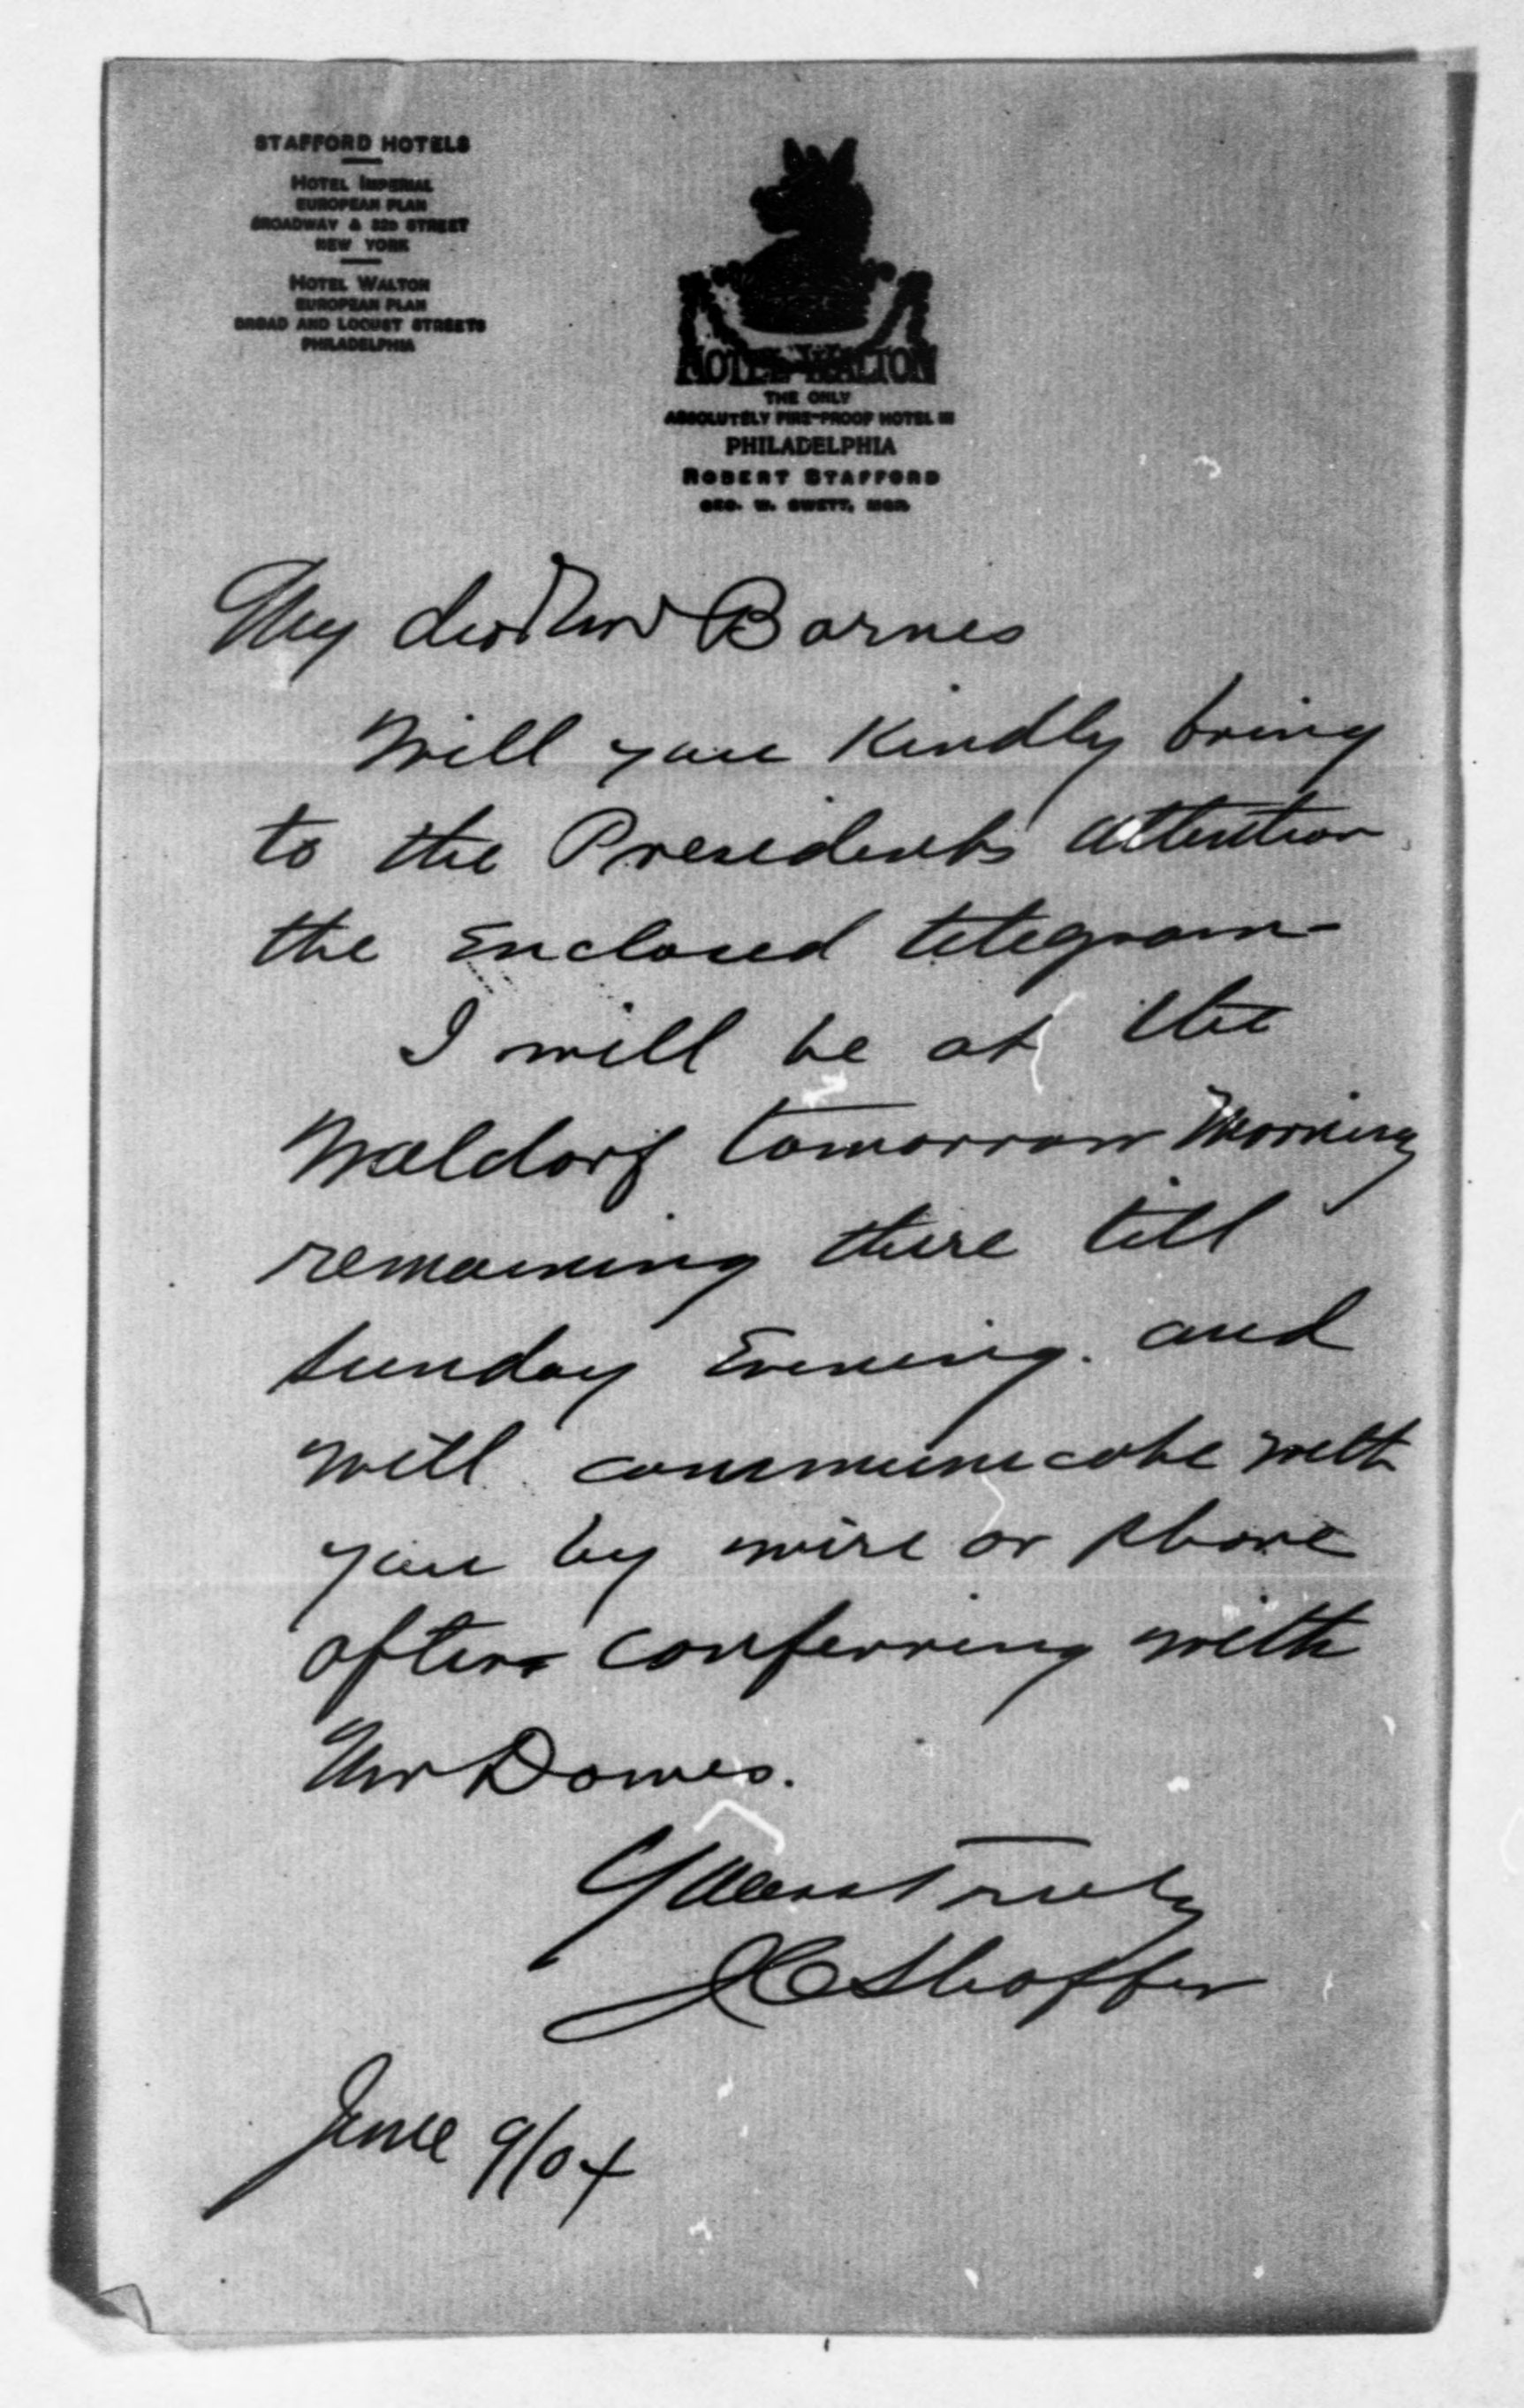 STAFFORD HOTELS
HOTEL IMPERIAL
EUROPEAN PLAN
BROADWAY & 32D STREET
NEW YORK
HOTEL WALTON
EUROPEAN PLAN
BROAD AND LOCUST STREETS
PHILADELPHIA
HOTEL WALTON
THE ONLY
ABSOLUTELY FIRE-PROOF HOTEL IN
PHILADELPHIA
ROBERT STAFFORD
GEO. W. SWETT, MGR.
My dear Mr Barnes
Will you Kindly bring
to the Presidents attention
the Enclosed telegram-
I will be at the
Waldorf tomorrow Morning
remaining there till
Sunday Evening. and
will communicate with
you by wire or phone
after conferring with
Mr Dawes.
Yours Truly
JCShaffer
June 9/04